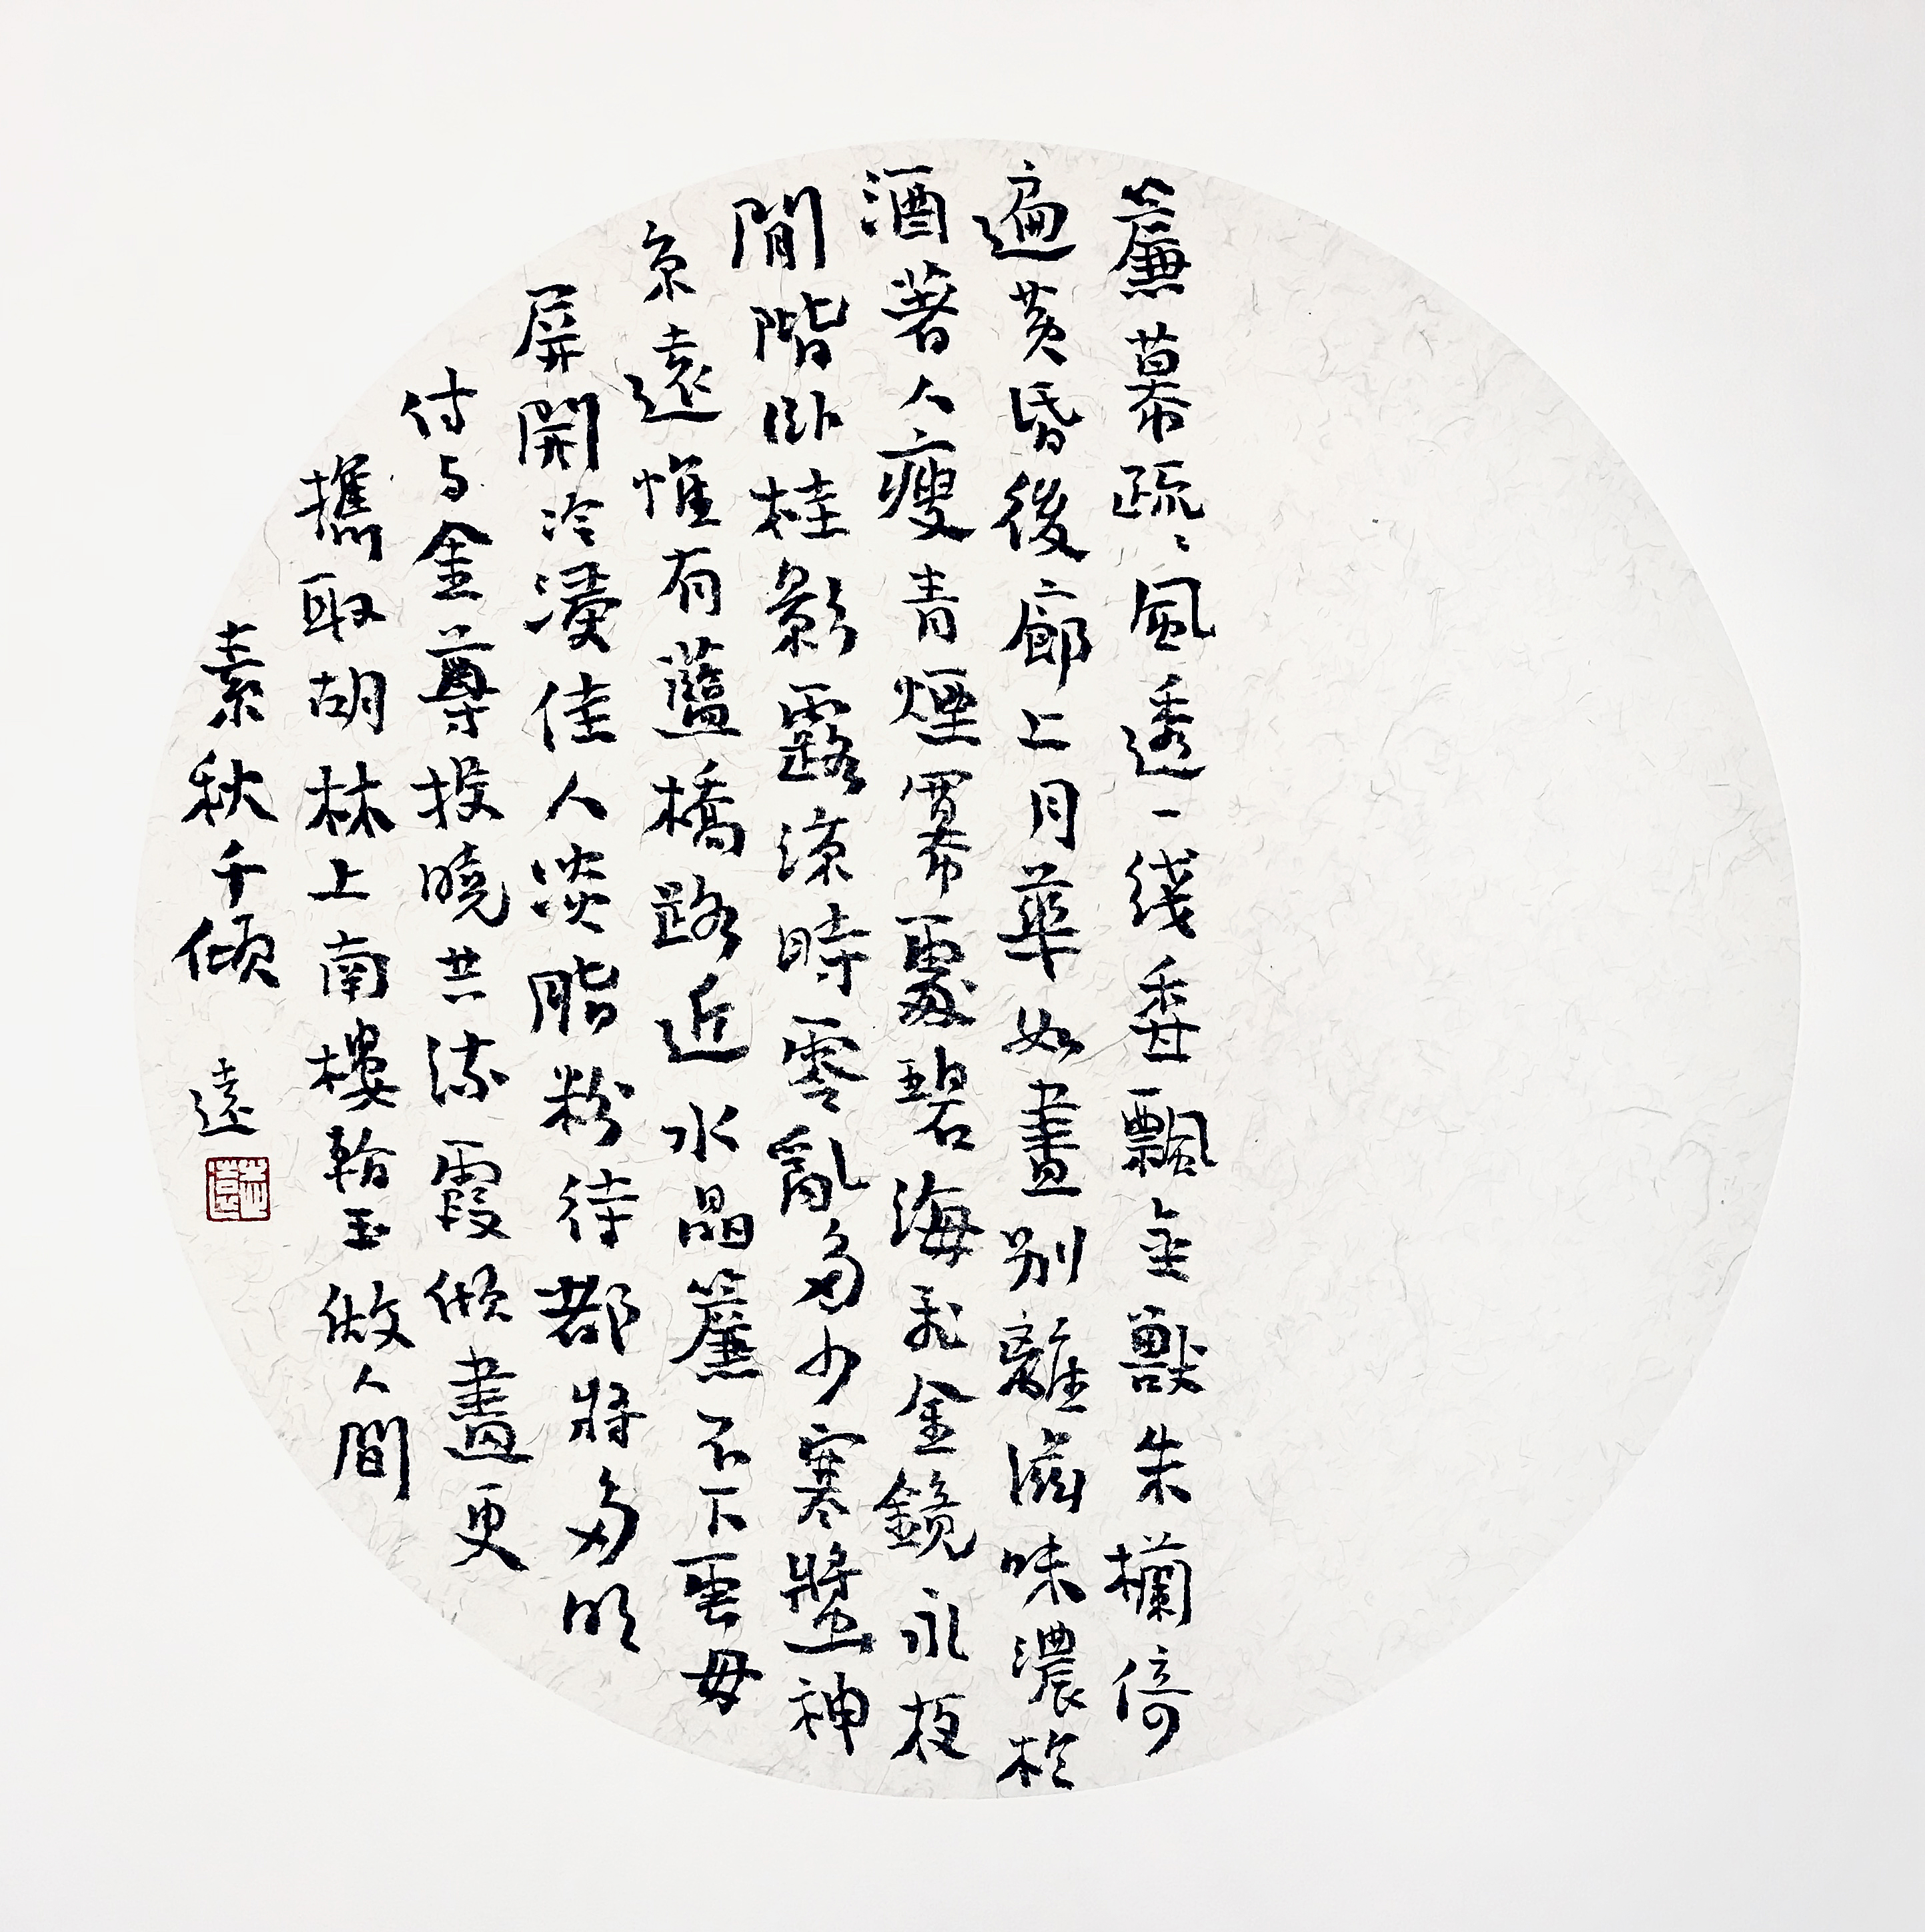 簾幕疏〻風透一綫香飄金獸朱欄倚
遍黃昏後廊上月華如晝別離滋味濃於
酒著人瘦青煙冪處碧海飛金鏡永夜
閒階臥桂影露涼時零亂多少寒螿神
京遠惟有藍橋路近水晶簾不下雲母
屏開冷浸佳人淡脂粉待都將多明
付与金尊投曉共流霞傾盡更
攜取胡床上南樓看玉做人間
素秋千傾
遠